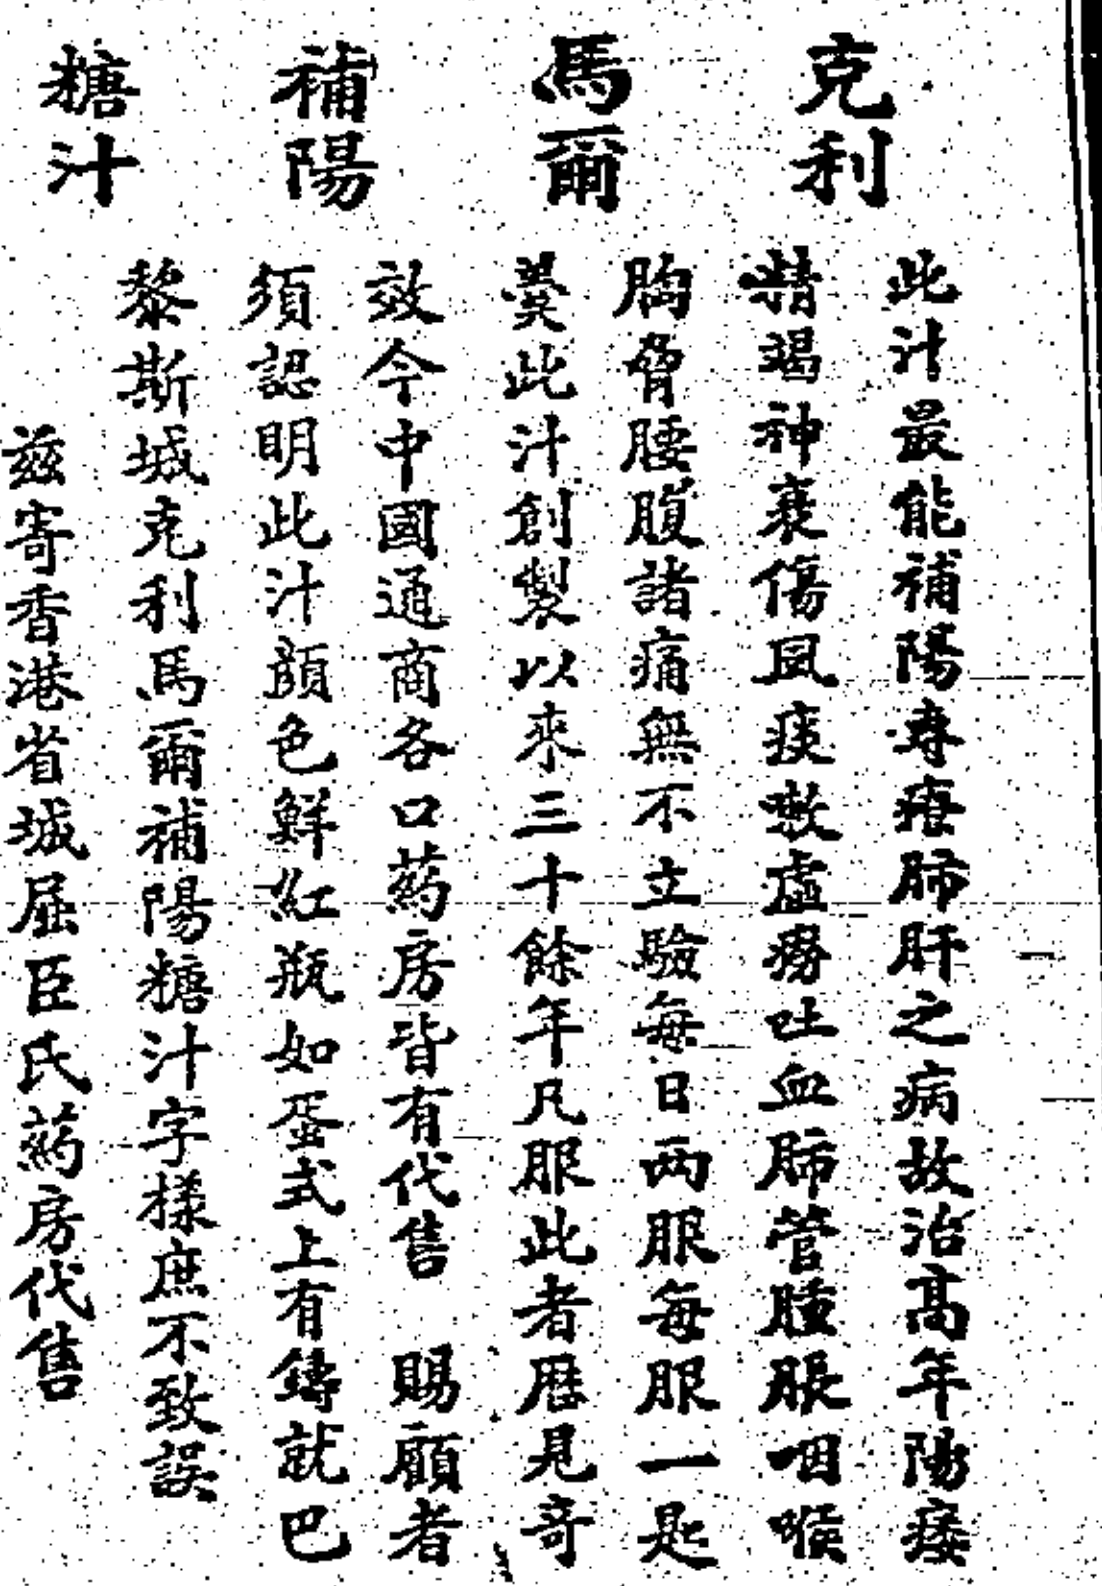 克利
馬爾
補陽
糖汁
此汁最能補陽專療肺肝之病故治高年陽痿
精竭神衰傷風痰嗽虛癆吐血肺管腫脹咽喉
胸脅腰腹諸痛無不立驗每日两服每服一匙
羹此汁創製以來三十餘年凡服此者歷見奇
效今中國通商各口葯房皆有代售 賜顧者
須認明此汁顏色鮮紅瓶如蛋式上有鑄就巴
黎斯城克利馬爾補陽糖汁字樣庶不致誤
茲寄香港省城屈臣氏葯房代售